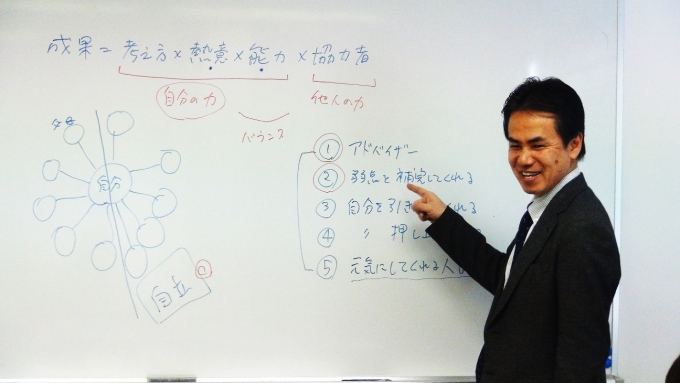 成果 = 考え方 × 熱意 × 能力 × 協力者
自分の力
他人の力
バランス
自分
自立
① アドバイザー
② 弱点を補完してくれる
③ 自分を引き くれる
④ 〃 押し上
⑤ 元気にしてくれる人